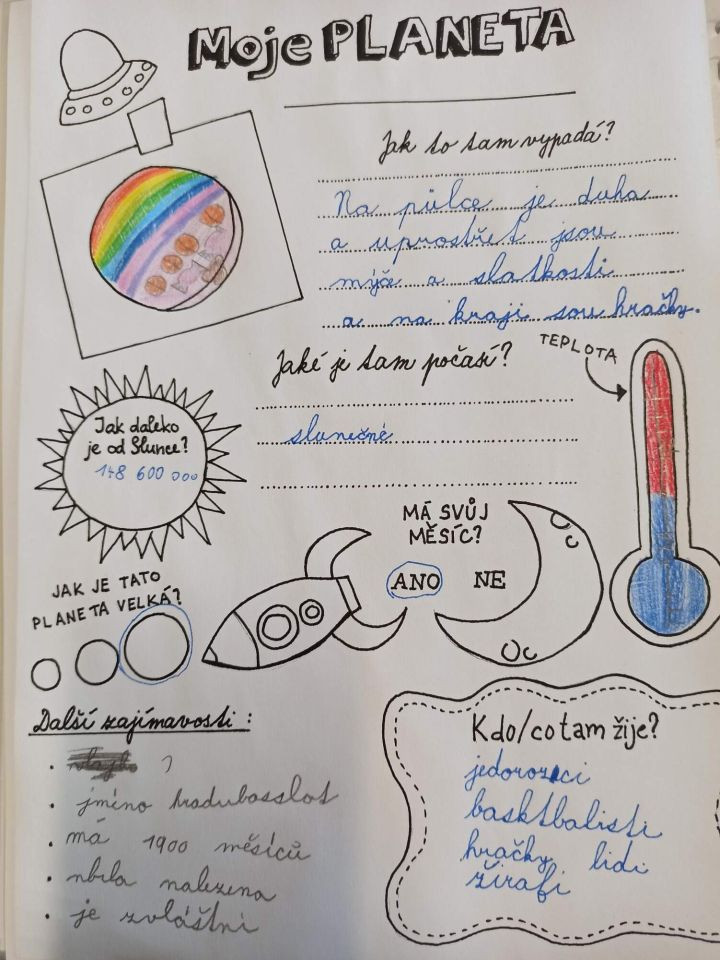 Moje PLANETA
Jak to tam vypadá?
Na půlce je duha
a uprostřet jsou
mýče a slatkosti
a na kraji sou hračky.
Jaké je tam počasí?
slunečné
TEPLOTA
Jak daleko
je od Slunce?
148 600 000
MÁ SVŮJ
MĚSÍC?
ANO NE
JAK JE TATO
PLANETA VELKÁ?
Další zajímavosti:
• ?
• jméno hradubasslot
• má 1900 měsíců
• nbila nalezena
• je zvláštní
Kdo/co tam žije?
jedorozci
basktbalisti
hračky lidi
žirafi